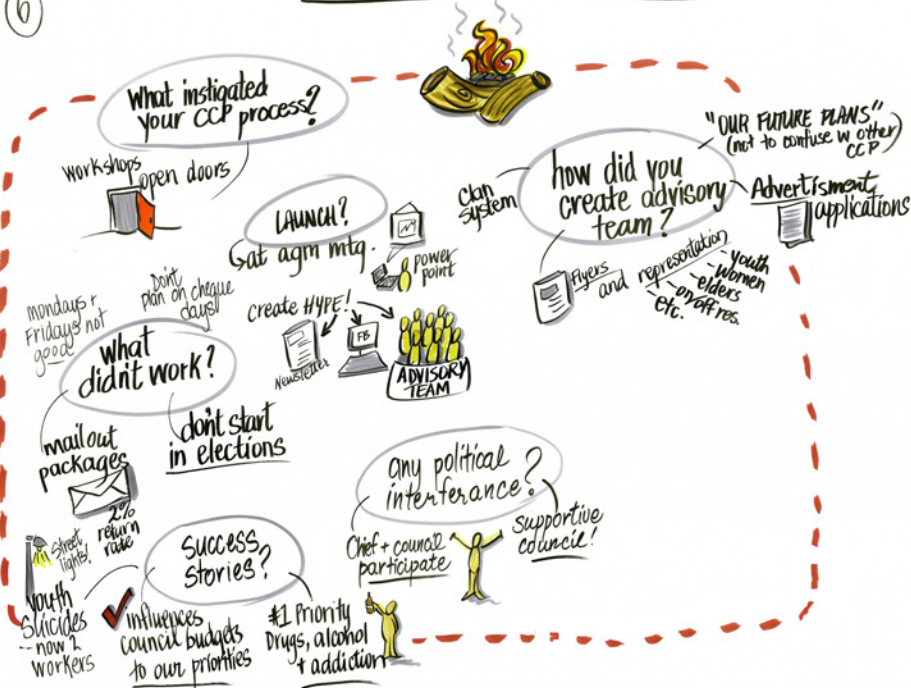 6
What instigated
your CCP process?
workshops
open doors
LAUNCH?
at agm mtg.
power
point
create HYPE!
Newsletter
FB
ADVISORY
TEAM
how did you
create advisory
team?
"OUR FUTURE PLANS"
(not to confuse w other
CCP)
Clan
system
Advertisment,
applications
Flyers
and representation
- youth
- women
- elders
- on/off res.
- etc.
mondays +
Fridays not
good
Don't
plan on cheque
days!
What
didn't work?
mailout
packages
2%
return
rate
don't start
in elections
any political
interferance?
Chief + council
participate
supportive
council!
success
stories?
street
lights!
youth
Suicides
-- now 2
workers
influences
council budgets
to our priorities
#1 Priority
Drugs, alcohol
+ addiction